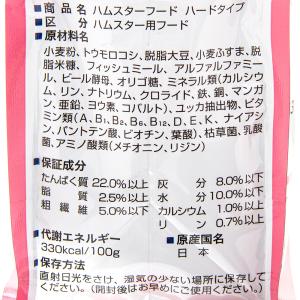 ●商品名 ハムスターフード ハードタイプ
●区分 ハムスター用フード
●原材料名
小麦粉、トウモロコシ、脱脂大豆、小麦ふすま、脱
脂米糠、フィッシュミール、アルファルファミー
ル、ビール酵母、オリゴ糖、ミネラル類(カルシウ
ム、リン、ナトリウム、クロライド、鉄、銅、マンガ
ン、亜鉛、ヨウ素、コバルト)、ユッカ抽出物、ビタ
ミン類(A、B1、B2、B6、B12、D、E、K、ナイアシ
ン、パントテン酸、ビオチン、葉酸)、枯草菌、乳酸
菌、アミノ酸類(メチオニン、リジン)
●保証成分
たんぱく質 22.0%以上 灰分 8.0%以下
脂質 2.5%以上 水分 10.0%以下
粗繊維 5.0%以下 カルシウム 1.0%以上
リン 0.7%以上
●代謝エネルギー ●原産国名
330kcal/100g 日本
●保存方法
直射日光をさけ、湿気の少ない場所に保存して
ください。(開封後はお早めにご使用ください。)